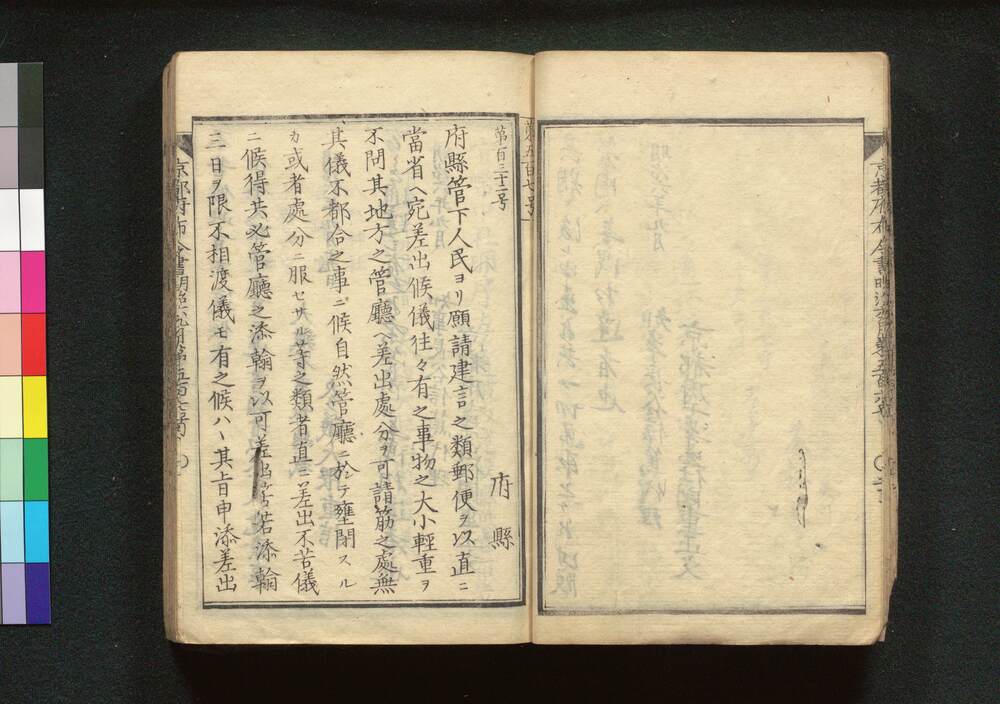 第五百七号
第百三十二号
府縣
府縣管下人民ヨリ願請建言之類郵便ヲ以直ニ
當省ヘ宛差出候儀往々有之事物之大小輕重ヲ
不問其地方之管廳ヘ差出處分ヲ可請筋之處無
其儀不都合之事ニ候自然管廳ニ於テ壅閉スル
カ或者處分ニ服セサル等之類者直ニ差出不苦儀
ニ候得共必管廳之添翰ヲ以可差出筈若添翰
三日ヲ限不相渡儀モ有之候ハヽ其旨申添差出
京都府布令書明治六年九月第五百七号